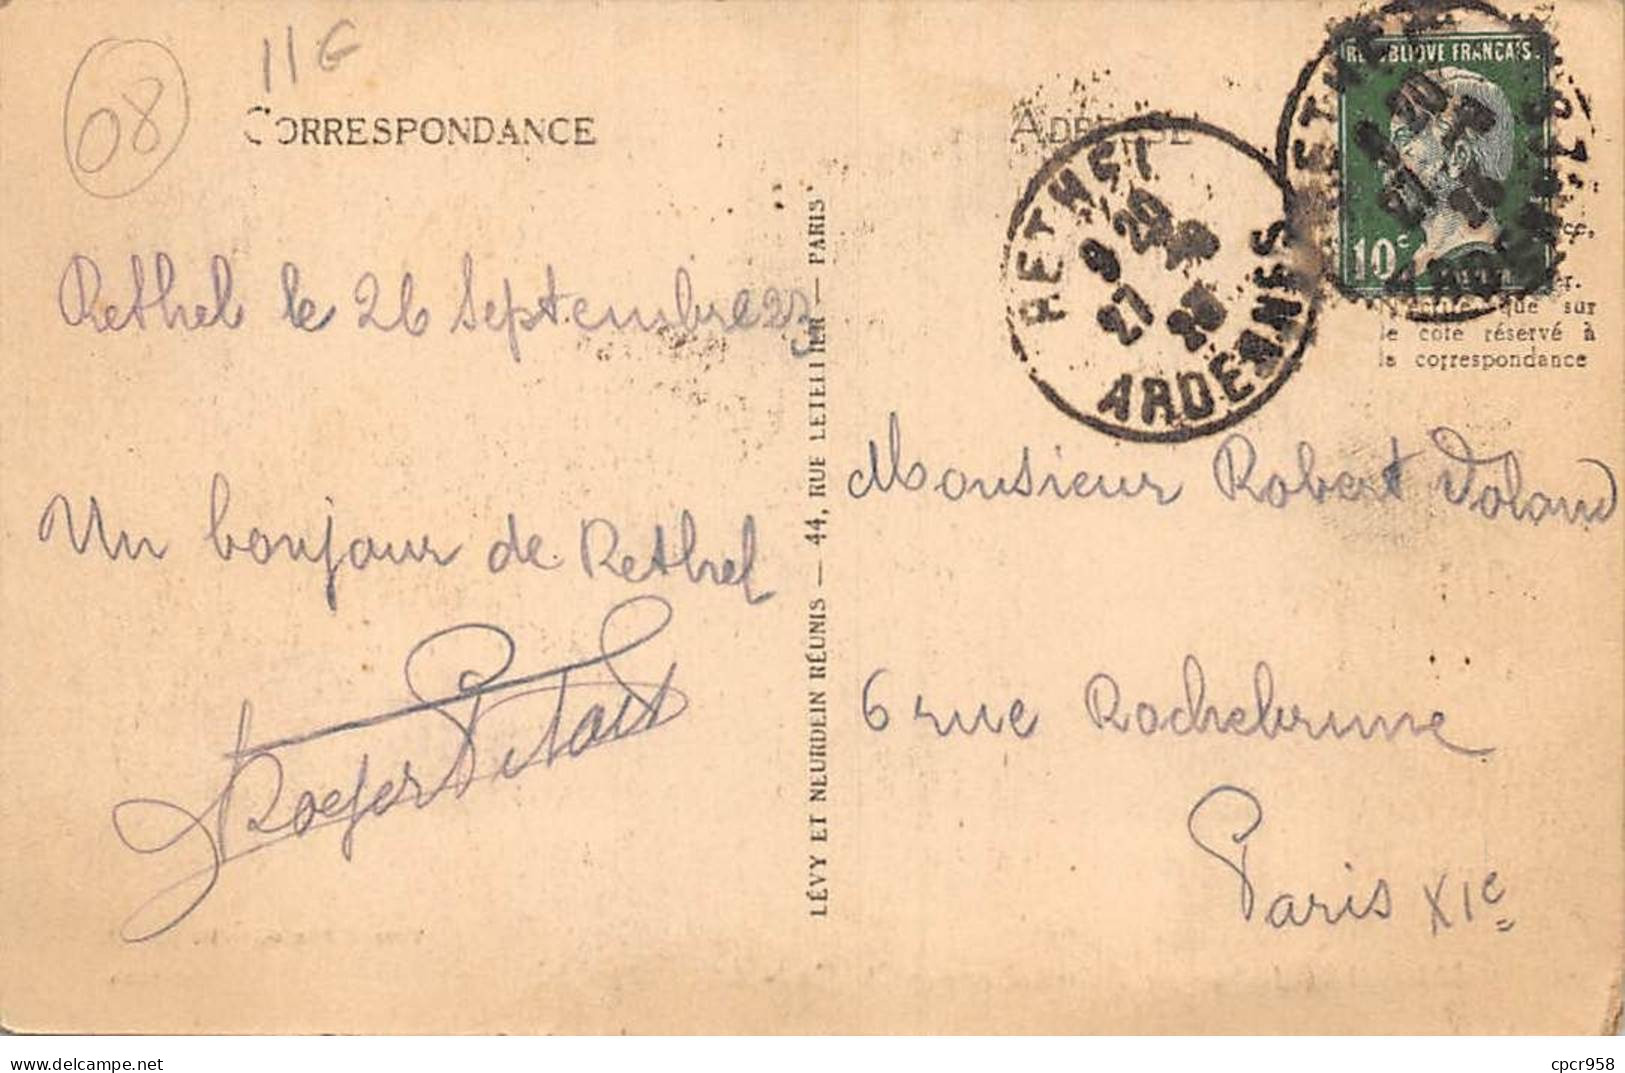 08
11 G
CORRESPONDANCE
ADRESSE
RETHEL
9 20
27
ARDENNES
REPUBLIQUE FRANÇAISE
10 c
que sur
le coté réservé à
la correspondance
Rethel le 26 Septembre 23
Un bonjour de Rethel
Roger
LÉVY ET NEURDEIN RÉUNIS — 44, RUE LETELLIER — PARIS
Monsieur Robert
6 rue Rochebrune
Paris XIe
Delcampe.net
cpcr958